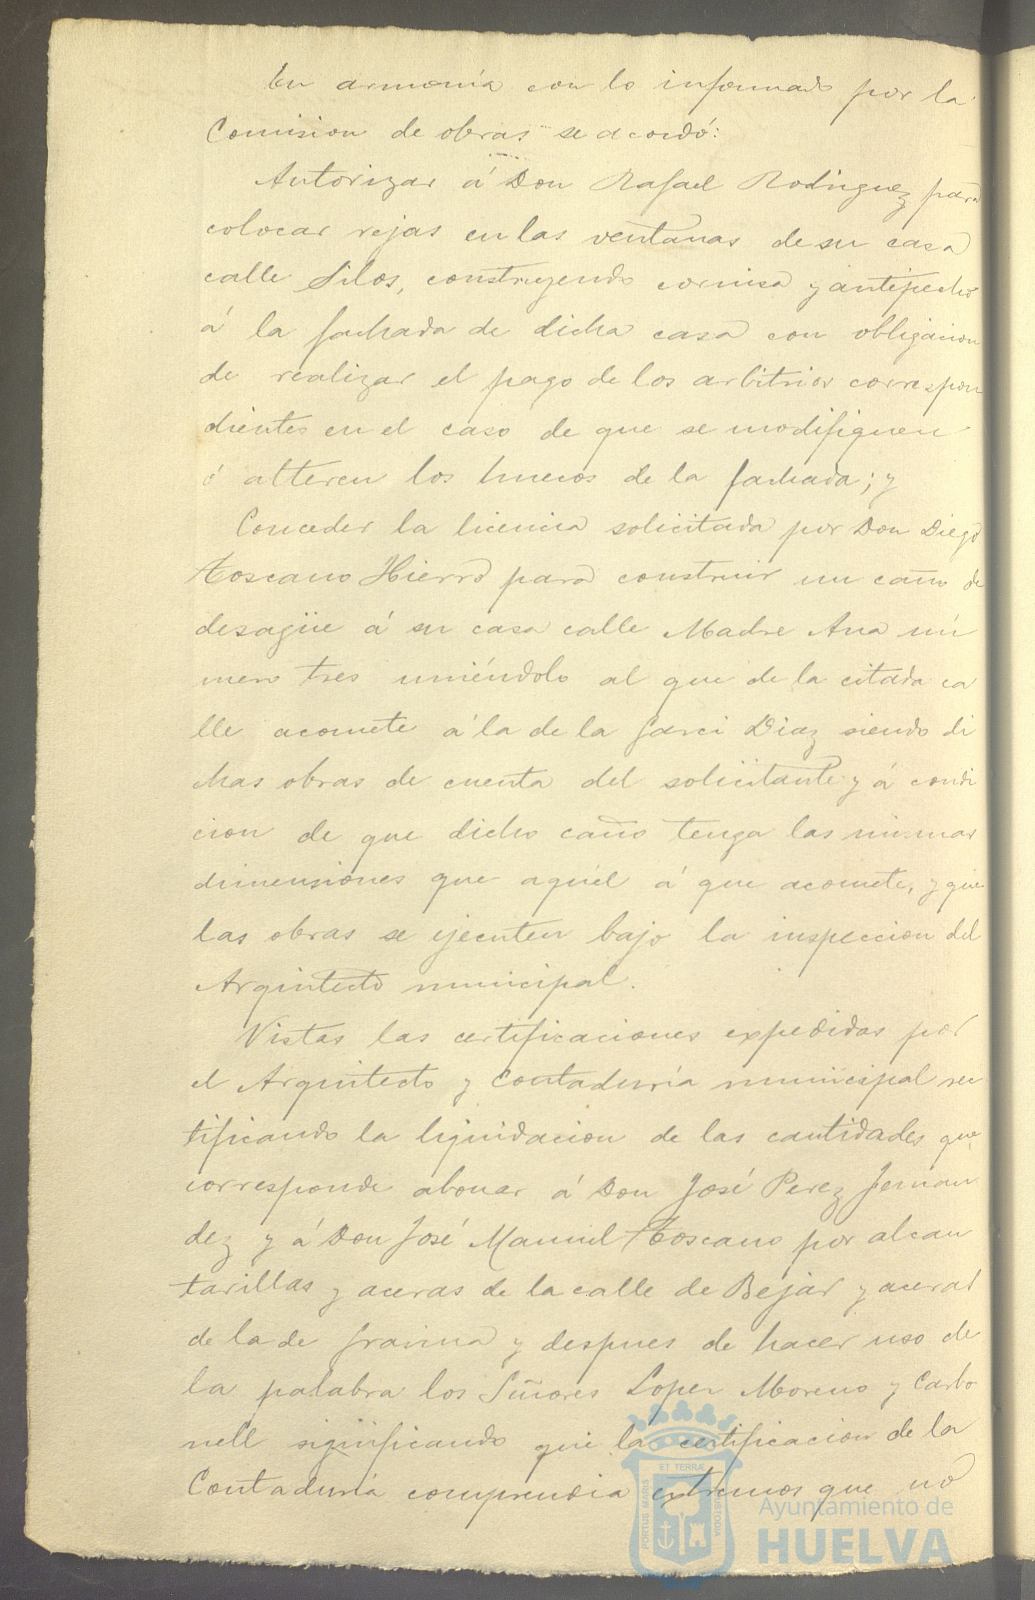 En armonía con lo informado por la
Comision de obras se acordó:
Autorizar á Don Rafael Rodriguez para
colocar rejas en las ventanas de su casa
calle Silos, construyendo cornisa y antepecho
á la fachada de dicha casa con obligacion
de realizar el pago de los arbitrios correspon
dientes en el caso de que se modifiquen
ó alteren los huecos de la fachada; y
Conceder la licencia solicitada por Don Diego
Toscano Hierro para construir un caño de
desagüe á su casa calle Madre Ana nú
mero tres uniéndolo al que de la citada ca
lle acomete á la de la Garci Diaz siendo di
chas obras de cuenta del solicitante y á condi
cion de que dicho caño tenga las mismas
dimensiones que aquel á que acomete, y que
las obras se ejecuten bajo la inspeccion del
Arquitecto municipal.
Vistas las certificaciones expedidas por
el Arquitecto y Contaduría municipal rec
tificando la liquidacion de las cantidades que
corresponde abonar á Don José Perez Fernan
dez y á Don José Manuel Toscano por alcan
tarillas y aceras de la calle de Bejar y aceras
de la de Gravina y despues de hacer uso de
la palabra los Señores Lopez Moreno y Carbo
nell significando que la certificacion de la
Contaduría comprendia extremos que no
PORTUS MARIS
ET TERRÆ
CUSTODIA
Ayuntamiento de
HUELVA